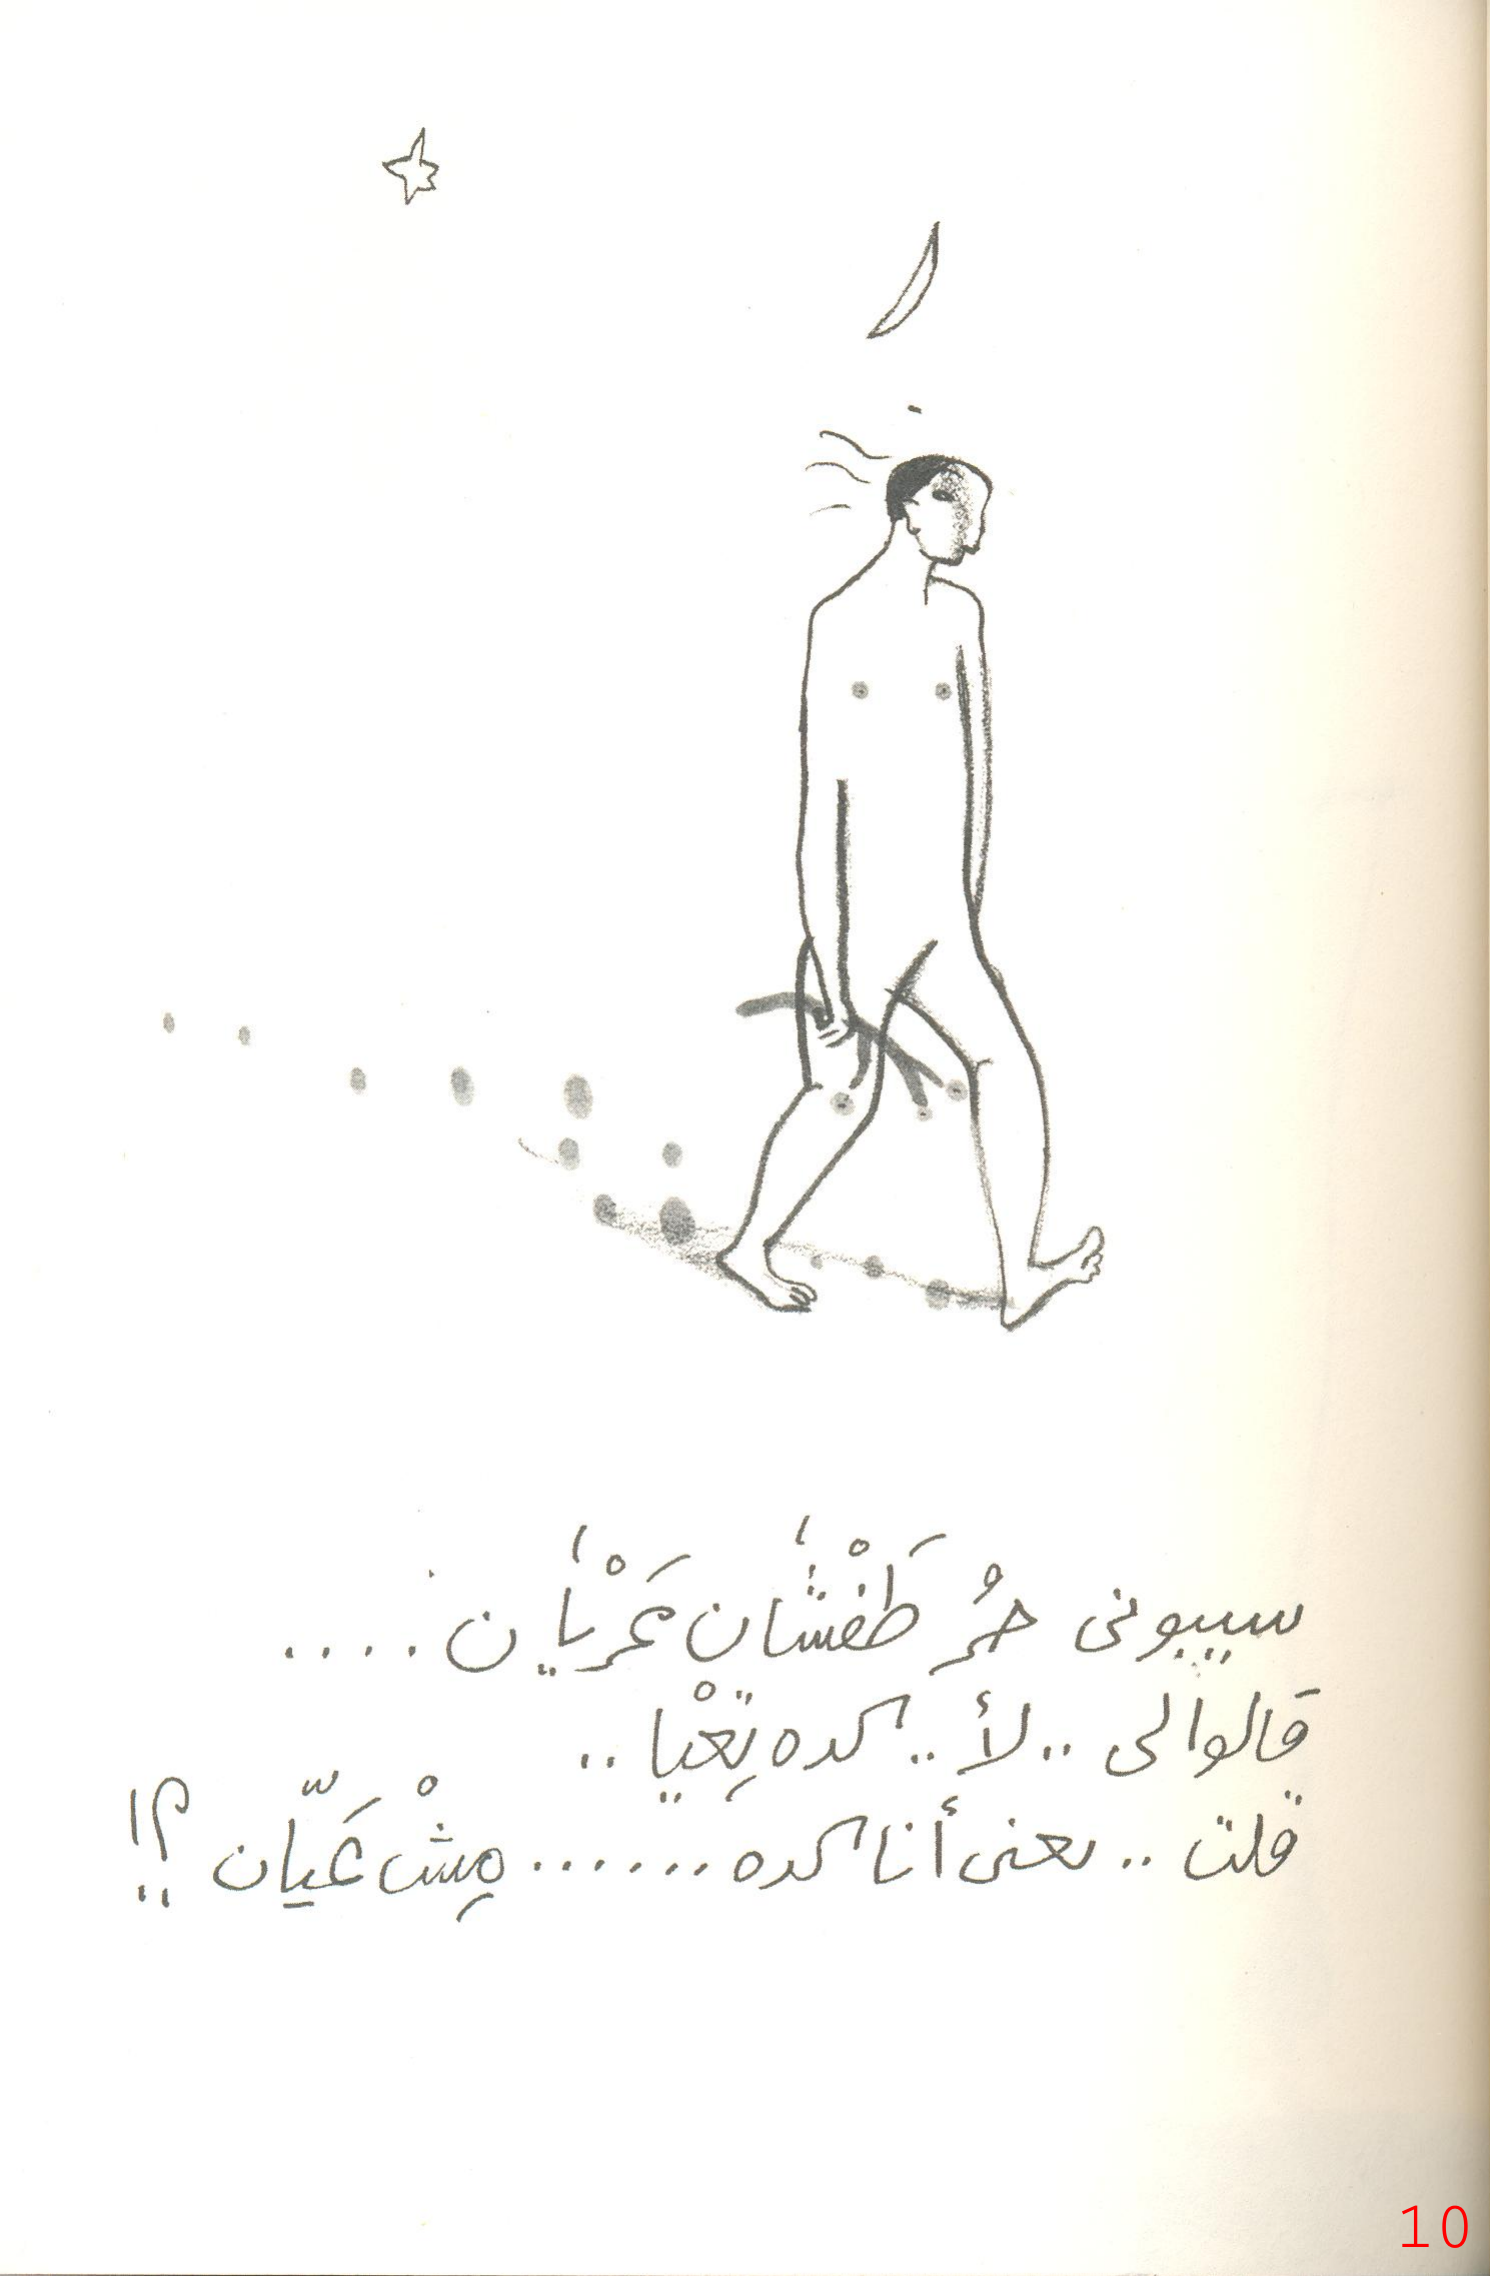 سيبونى حُر طَفْشَان عَرْيَان ....
قالوا لى .. لأ .. كده تِعْيا ..
قلت .. يعنى أنا كده ...... مِشْ عَيَّان ؟!..
10